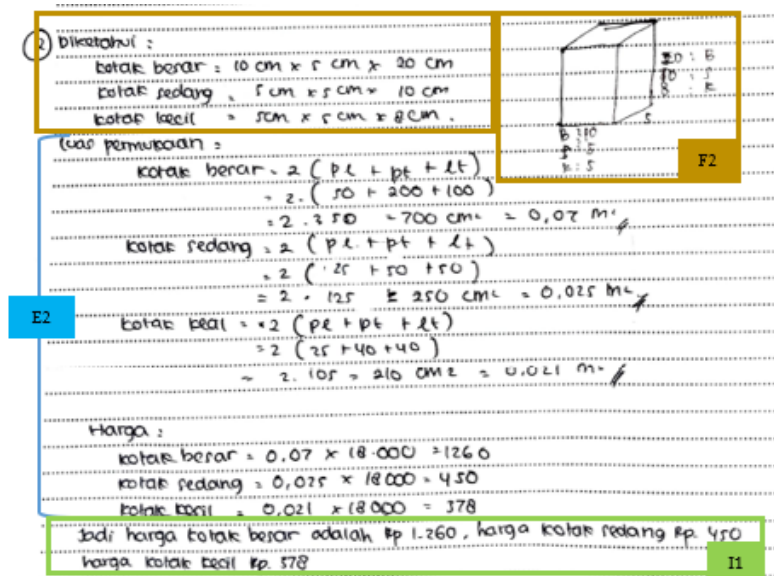 2 Diketahui :
kotak besar : 10 cm x 5 cm x 20 cm
kotak sedang : 5 cm x 5 cm x 10 cm
kotak kecil = 5cm x 5 cm x 8 cm .
20 : B
10 : S
8 : K
5
B : 10
S : 5
K : 5
F2
Luas permukaan :
kotak besar = 2 ( pl + pt + lt )
= 2 . ( 50 + 200 + 100 )
= 2 . 350 = 700 cm² = 0,07 m²
kotak sedang = 2 ( pl + pt + lt )
= 2 ( 25 + 50 + 50 )
= 2 . 125 = 250 cm² = 0,025 m²
E2
kotak kecil = 2 ( pl + pt + lt )
= 2 ( 25 + 40 + 40 )
= 2. 105 = 210 cm2 = 0,021 m²
Harga :
kotak besar = 0,07 x 18.000 = 1260
kotak sedang = 0,025 x 18000 = 450
kotak kecil = 0,021 x 18000 = 378
Jadi harga kotak besar adalah Rp 1.260, harga kotak sedang Rp. 450
harga kotak kecil Rp. 378
I1